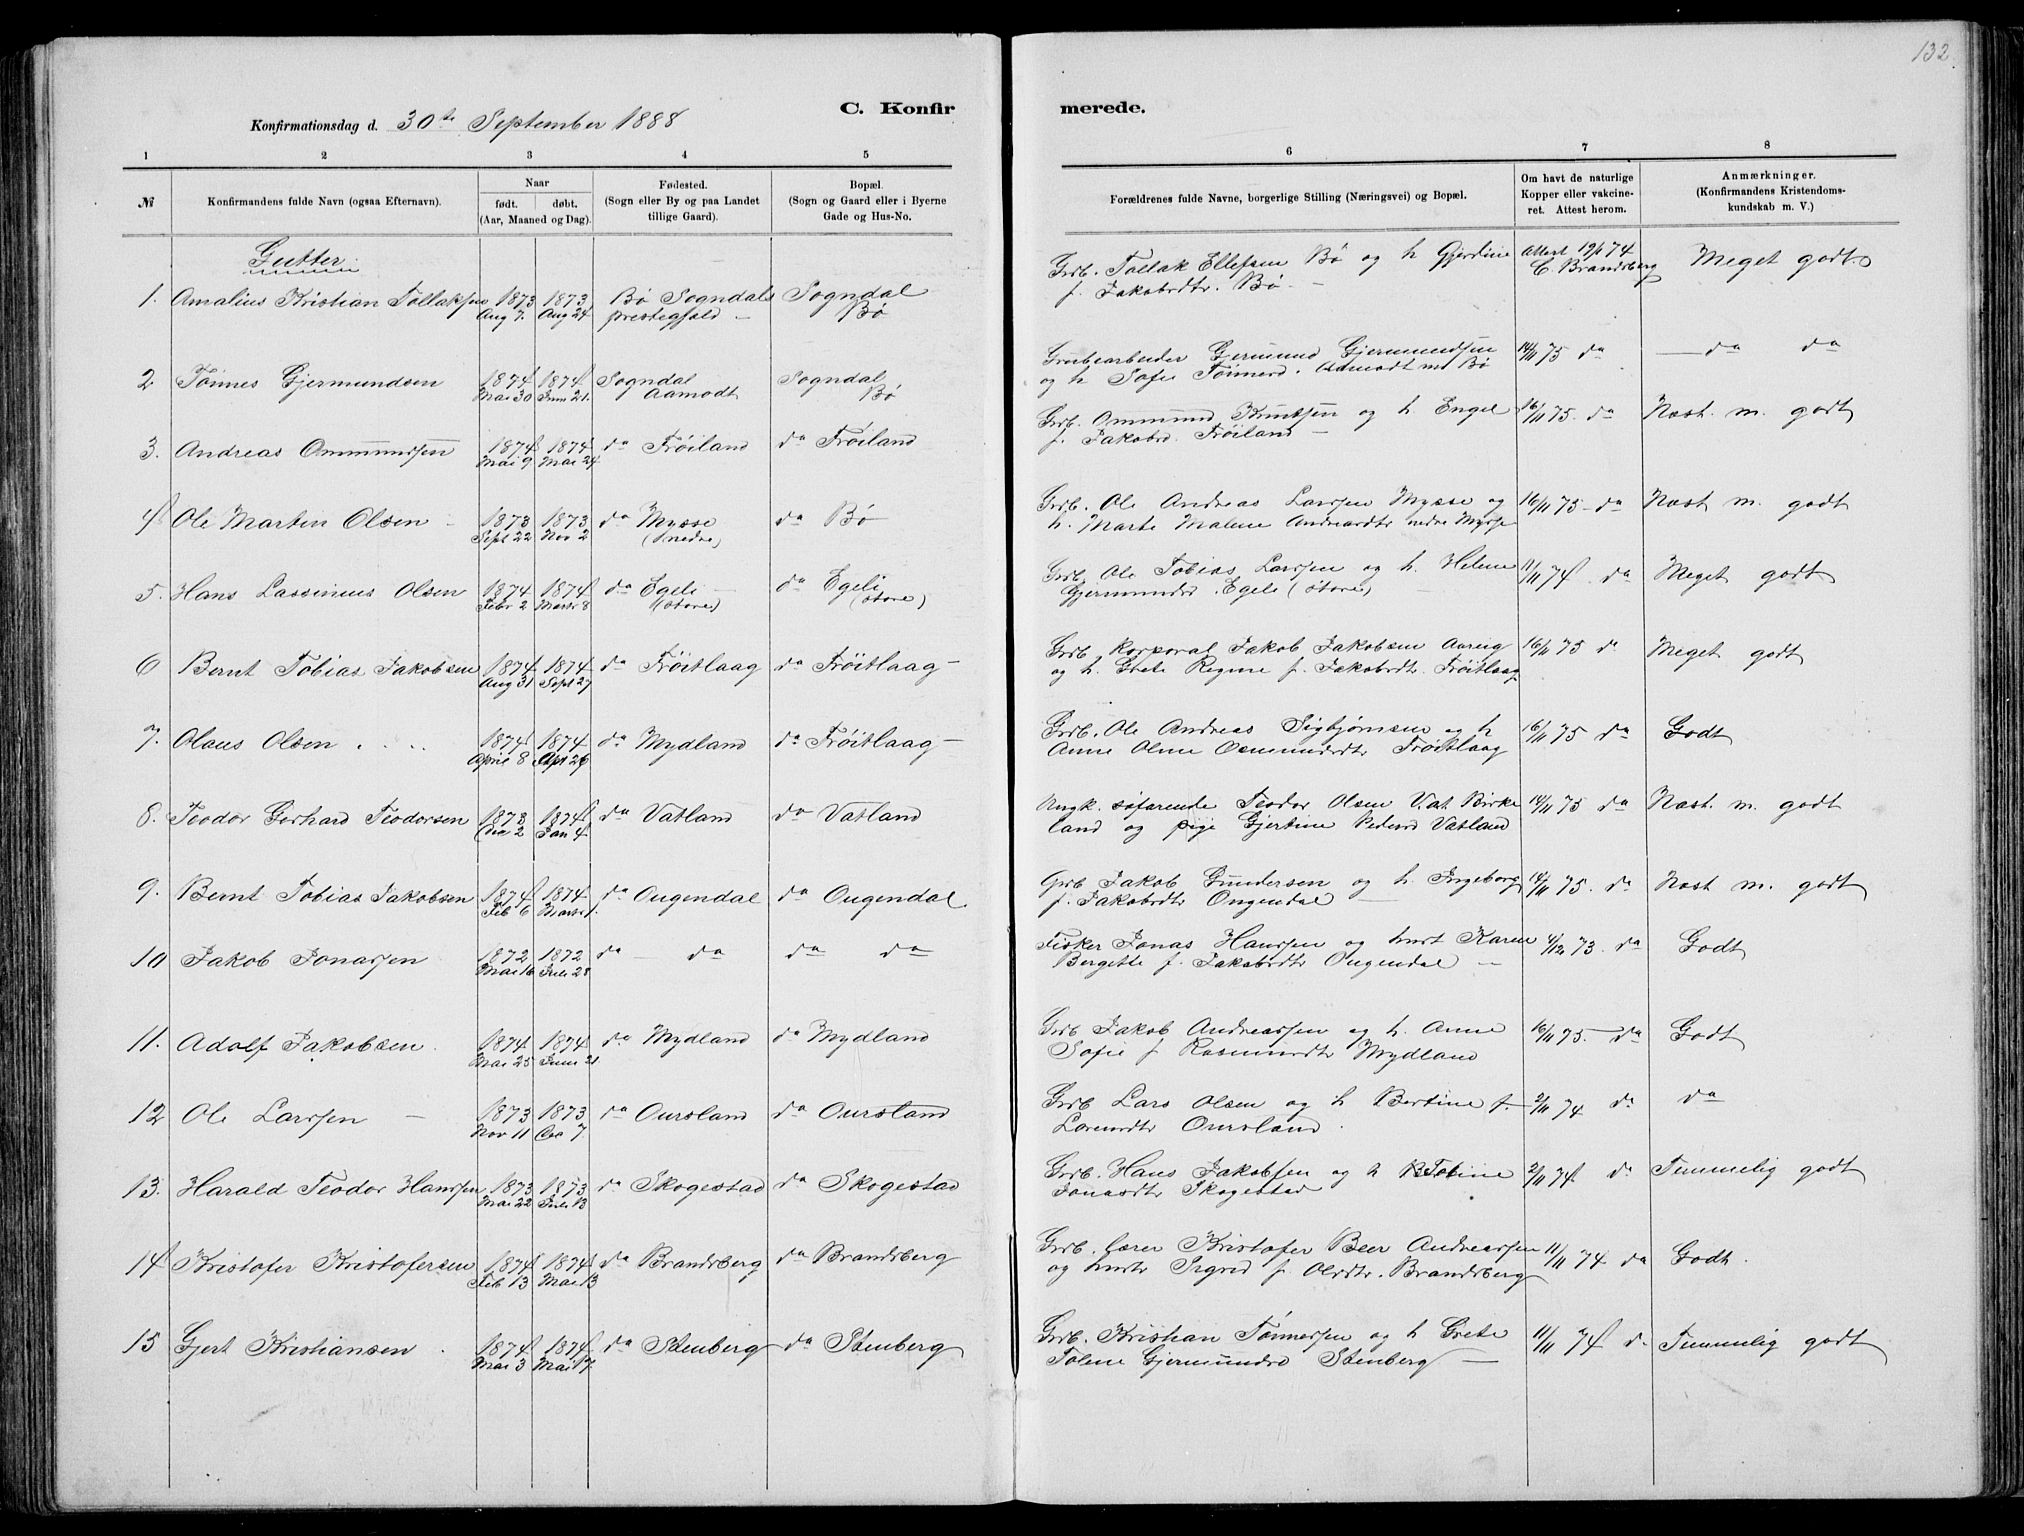 132
C. Konfirmerede.
Konfirmationsdag d. 30te September 1888
1 2 3 4 5 6 7 8
№
Konfirmandens fulde Navn (ogsaa Efternavn).
Naar
født. døbt.
(Aar, Maaned og Dag).
Fødested.
(Sogn eller By og paa Landet
tillige Gaard).
Bopæl.
(Sogn og Gaard eller i Byerne
Gade og Hus-No.
Forældrenes fulde Navne, borgerlige Stilling (Næringsvei) og Bopæl.
Om havt de naturlige
Kopper eller vakcine-
ret. Attest herom.
Anmærkninger.
(Konfirmandens Kristendoms-
kundskab m. V.)
Gutter.
1. Amalius Kristian Tollaksen 1873 1873 Bø Sogndals Sogndal
Aug 7. Aug 24 prestegjeld — Bø
Grdb. Tollak Ellefsen Bø og h Gjerdine Attest 19/1 74 Meget godt
f. Jakobsdtr. Bø. — C. Brandsberg
2 Tønnes Gjermundsen 1874 1874 Sogndal Sogndal
Mai 30 Juni 21. Aamodt Bø
Grubearbeider Gjermund Gjermundsen 14/11 75 da — da da
og h Sofie Tønnesd. Aamodt nu Bø
3. Andreas Ommundsen 1874 1874 da Frøiland da Frøiland
Mai 9 Mai 24
Grb. Ommund Knutsen og h. Engel 16/11 75. da Næst. m. godt
f. Jakobsd. Frøiland —
4 Ole Martin Olsen 1873 1873 da Mysse da Bø
Sept 22 Nov 2 (nedre)
Grb. Ole Andreas Larssen Mysse og 16/11 75 - da Næst m. godt
h. Marte Malene Andreasdtr nedre Mysse
5. Hans Lassinius Olsen 1874 1874 da Egeli — da Egeli
Febr 2 Marts 8 (store) (store)
Grb. Ole Tobias Larssen og h. Helene 11/11 74. da Meget godt
Gjermundsd. Egeli (store) —
6 Bernt Tobias Jakobsen 1874 1874 da Frøitlaag da Frøitlaag —
Aug 31 Sept 27
Grb. Korporal Jakob Jakobsen Aarrig 16/11 75 da Meget godt
og h. Grete Regine f. Jakobsdtr. Frøitlaag
7. Olaus Olsen . . . . 1874 1874 da Mydland da Frøitlaag —
April 8 Apr 26
Grb. Ole Andreas Sigbjørnsen og h 16/11 75 da Godt
Anne Oline Osmundsdtr Frøitlaag
8. Teodor Gerhard Teodorsen 1873 1874 da Vatland da Vatland
Dec 2 Jan 4
Ungk. søfarende Teodor Olsen Vat. Birke 14/11 75 da Næst. m. godt
land og pige Gjertine Pedersd Vatland
9. Bernt Tobias Jakobsen 1874 1874 da Ougendal da Ougendal.
Feb 6 Marts 1.
Grb Jakob Gundersen og h. Ingeborg 14/11 75. da Næst m. godt
f. Jakobsdtr Ougendal —
10 Jakob Jonassen 1872 1872 da — da da da
Mai 16 Juli 28
Fisker Jonas Hanssen og hust Karen 4/12 73. da Godt
Bergitte f. Jakobsdtr Ougendal —
11. Adolf Jakobsen 1874 1874 da Mydland da Mydland
Mai 25 Juni 21
Grb Jakob Andreassen og h. Anne 16/11 75. — da Godt
Sofie f. Rasmusdtr Mydland
12 Ole Larssen — 1873 1873 da Oursland da Oursland
Nov 11 Dec 7
Grb Lars Olsen og h Bertine f. 2/11 74 da da
Larsdtr Oursland.
13. Harald Teodor Hanssen 1873 1873 da Skogestad da Skogestad
Mai 22 Juli 13
Grb. Hans Jakobsen og h B Tobine 2/11 74 da Temmelig godt
Jonasdtr Skogestad
14 Kristofer Kristofersen 1874 1874 da Brandsberg da Brandsberg
Feb 13 Mai 13
Grb. lærer Kristofer Beer Andreassen 11/11 74 da Godt.
og hustr Sigrid f. Olsdtr. Brandsberg
15 Gjert Kristiansen . 1874 1874 da Stenberg da Stenberg
Mai 3 Mai 17
Grb. Kristian Tønnessen og h Grete 11/11 74 d. Temmelig godt
Tolene Gjermundsd Stenberg —